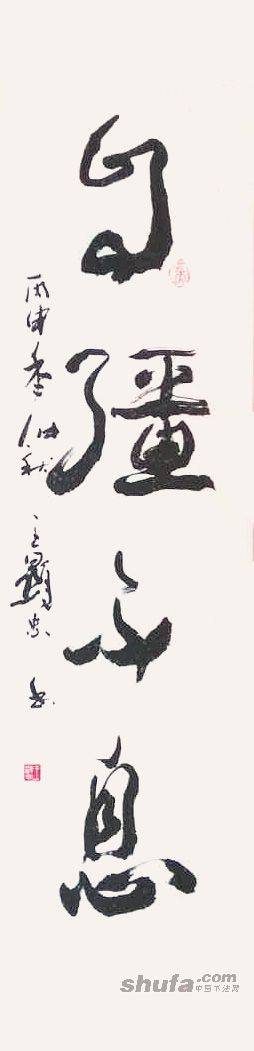 自彊不息
丙申季仲秋
王显忠书
shufa.com
中国书法网